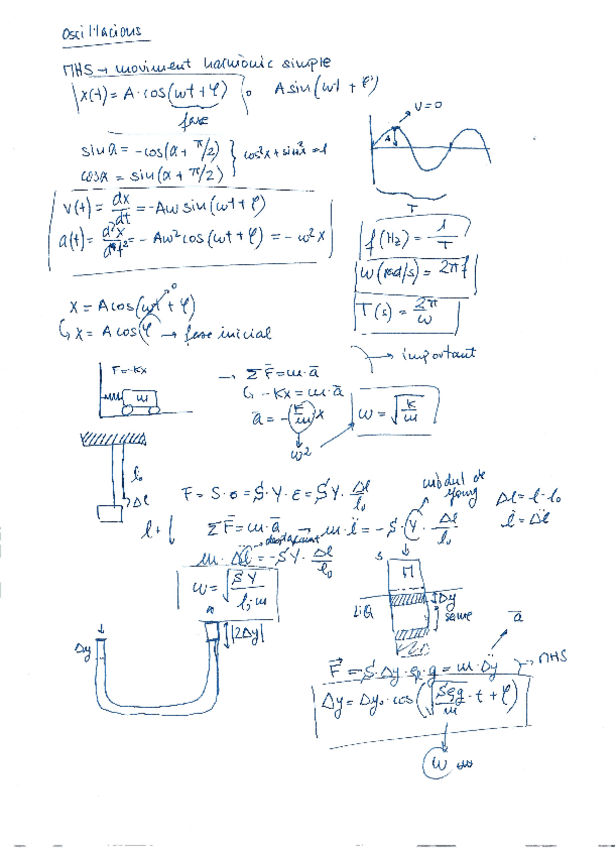 Oscil·lacions
MHS → moviment harmònic simple
x(t) = A·cos(ωt + φ) o A sin(ωt + φ)
fase
V=0
A
T
sin a = -cos(a + π/2)
cos a = sin(a + π/2)
cos²x + sin²x = 1
v(t) = dx/dt = -Aω sin(ωt + φ)
a(t) = d²x/dt² = -Aω² cos(ωt + φ) = -ω²x
f(Hz) = 1/T
ω(rad/s) = 2πf
T(s) = 2π/ω
x = A cos(ωt + φ)
0
x = A cos φ → fase inicial
→ important
F=-Kx
m
→ ΣF̄ = m·ā
-Kx = m·ā
ā = -(K/m)x
ω²
ω = √(K/m)
l₀
Δl
F = S·σ = S·Y·ε = S·Y·Δl/l₀
mòdul de young
Δl = l - l₀
l̈ = Δl̈
ΣF̄ = m·ā → m·l̈ = -S·Y·Δl/l₀
m·Δl̈ = -SY·Δl/l₀
ω = √(SY/l₀m)
S
M
LIQ
Δy
Δy
|2Δy|
ā
F⃗ = S·Δy·ρ·g = m·Δÿ → MHS
Δy = Δy₀·cos(√(Sρg/m)·t + φ)
ω